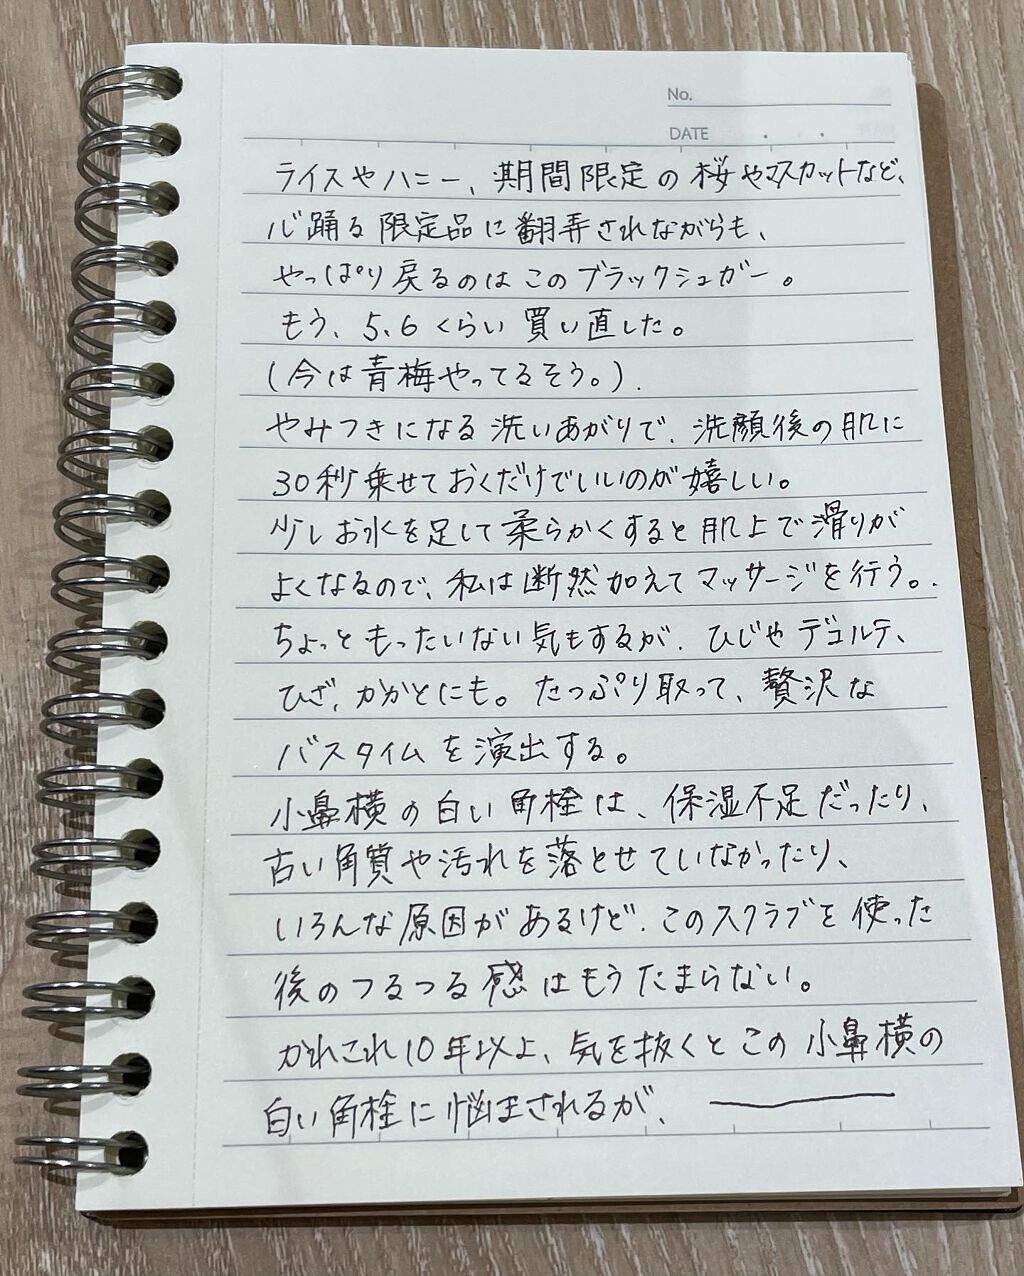 No.
DATE . . .
ライスやハニー、期間限定の桜やマスカットなど、
心踊る限定品に翻弄されながらも、
やっぱり戻るのはこのブラックシュガー。
もう、5、6くらい買い直した。
(今は青梅やってるそう。).
やみつきになる洗いあがりで、洗顔後の肌に
30秒乗せておくだけでいいのが嬉しい。
少しお水を足して柔らかくすると肌上で滑りが
よくなるので、私は断然加えてマッサージを行う。.
ちょっともったいない気もするが、ひじやデコルテ、
ひざ、かかとにも。たっぷり取って、贅沢な
バスタイムを演出する。
小鼻横の白い角栓は、保湿不足だったり、
古い角質や汚れを落とせていなかったり、
いろんな原因があるけど、このスクラブを使った
後のつるつる感はもうたまらない。
かれこれ10年以上、気を抜くとこの小鼻横の
白い角栓に悩まされるが、